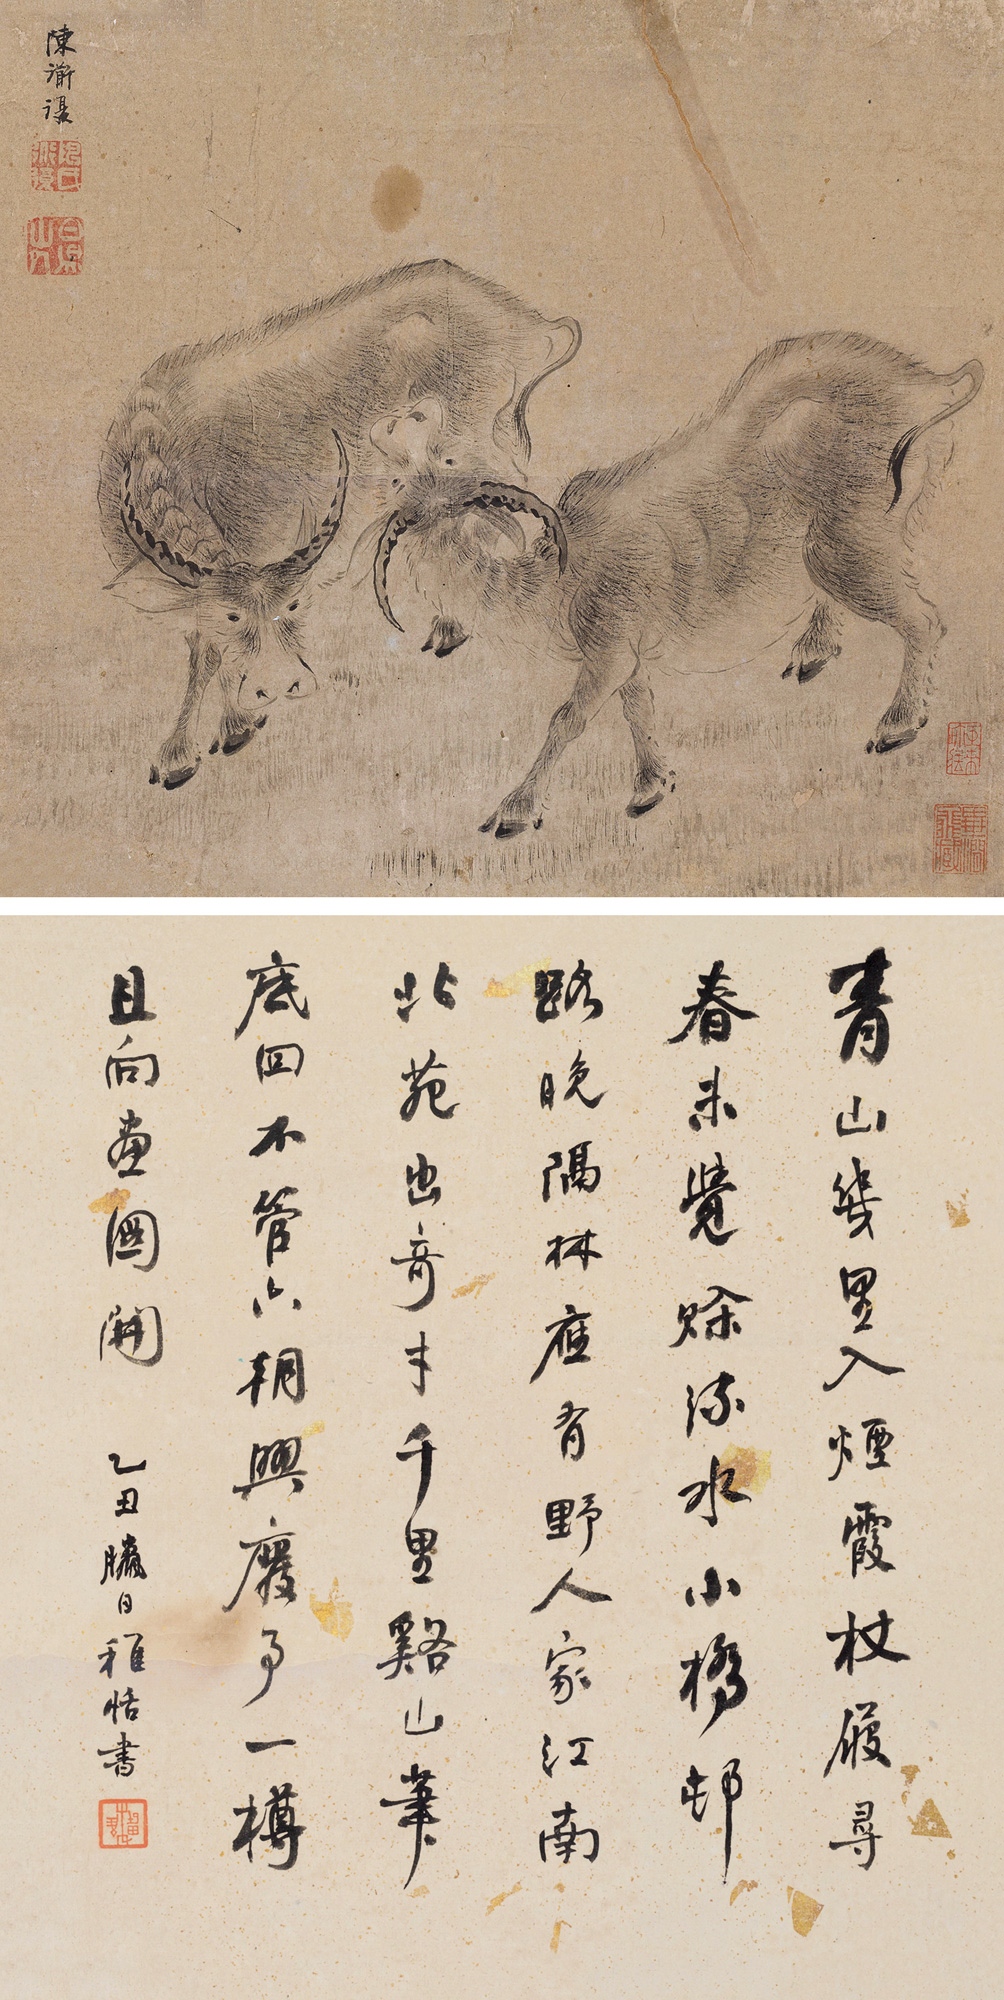 陳衡
青山幾里入煙霞杖屐尋
春未覺賒流水小橋邨
路晚隔林應有野人家江南
北苑出奇才千里谿山筆
底回不管六朝興廢事一樽
且向畫圖開
乙丑臘日稚恬書